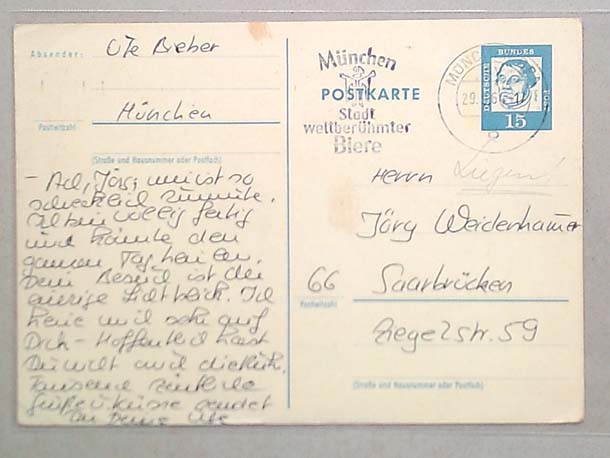 Absender: Ute Bieber
München
Postleitzahl
(Straße und Hausnummer oder Postfach)
- Ach, Jörg, mir ist so
schrecklich zumute.
Ich bin völlig fertig
und könnte den
ganzen Tag heulen.
Dein Besuch ist der
einzige Lichtblick. Ich
freue mich sehr auf
Dich - Hoffentlich hast
Du mich
Tausend zärtliche
Grüße u. Küsse sendet
Dir Deine Ute
München
Stadt
weltberühmter
Biere
POSTKARTE
MÜNC
29.
DEUTSCHE BUNDESPOST
15
Herrn
Jörg Weidenhauer
66 Saarbrücken
Postleitzahl
Ziegelstr. 59
(Straße und Hausnummer oder Postfach)